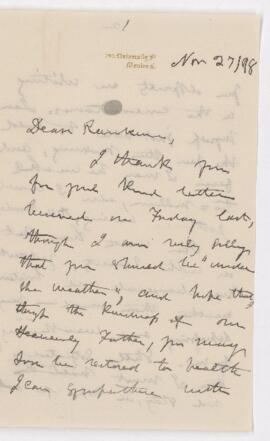 Nov 27/98
Dear Rankine,
I thank you
for your kind letter
received on Friday last,
though I am very sorry
that you should be "under
the weather", and hope that
through the kindness of our
Heavenly Father, you may
soon be restored to health
I can sympathise with